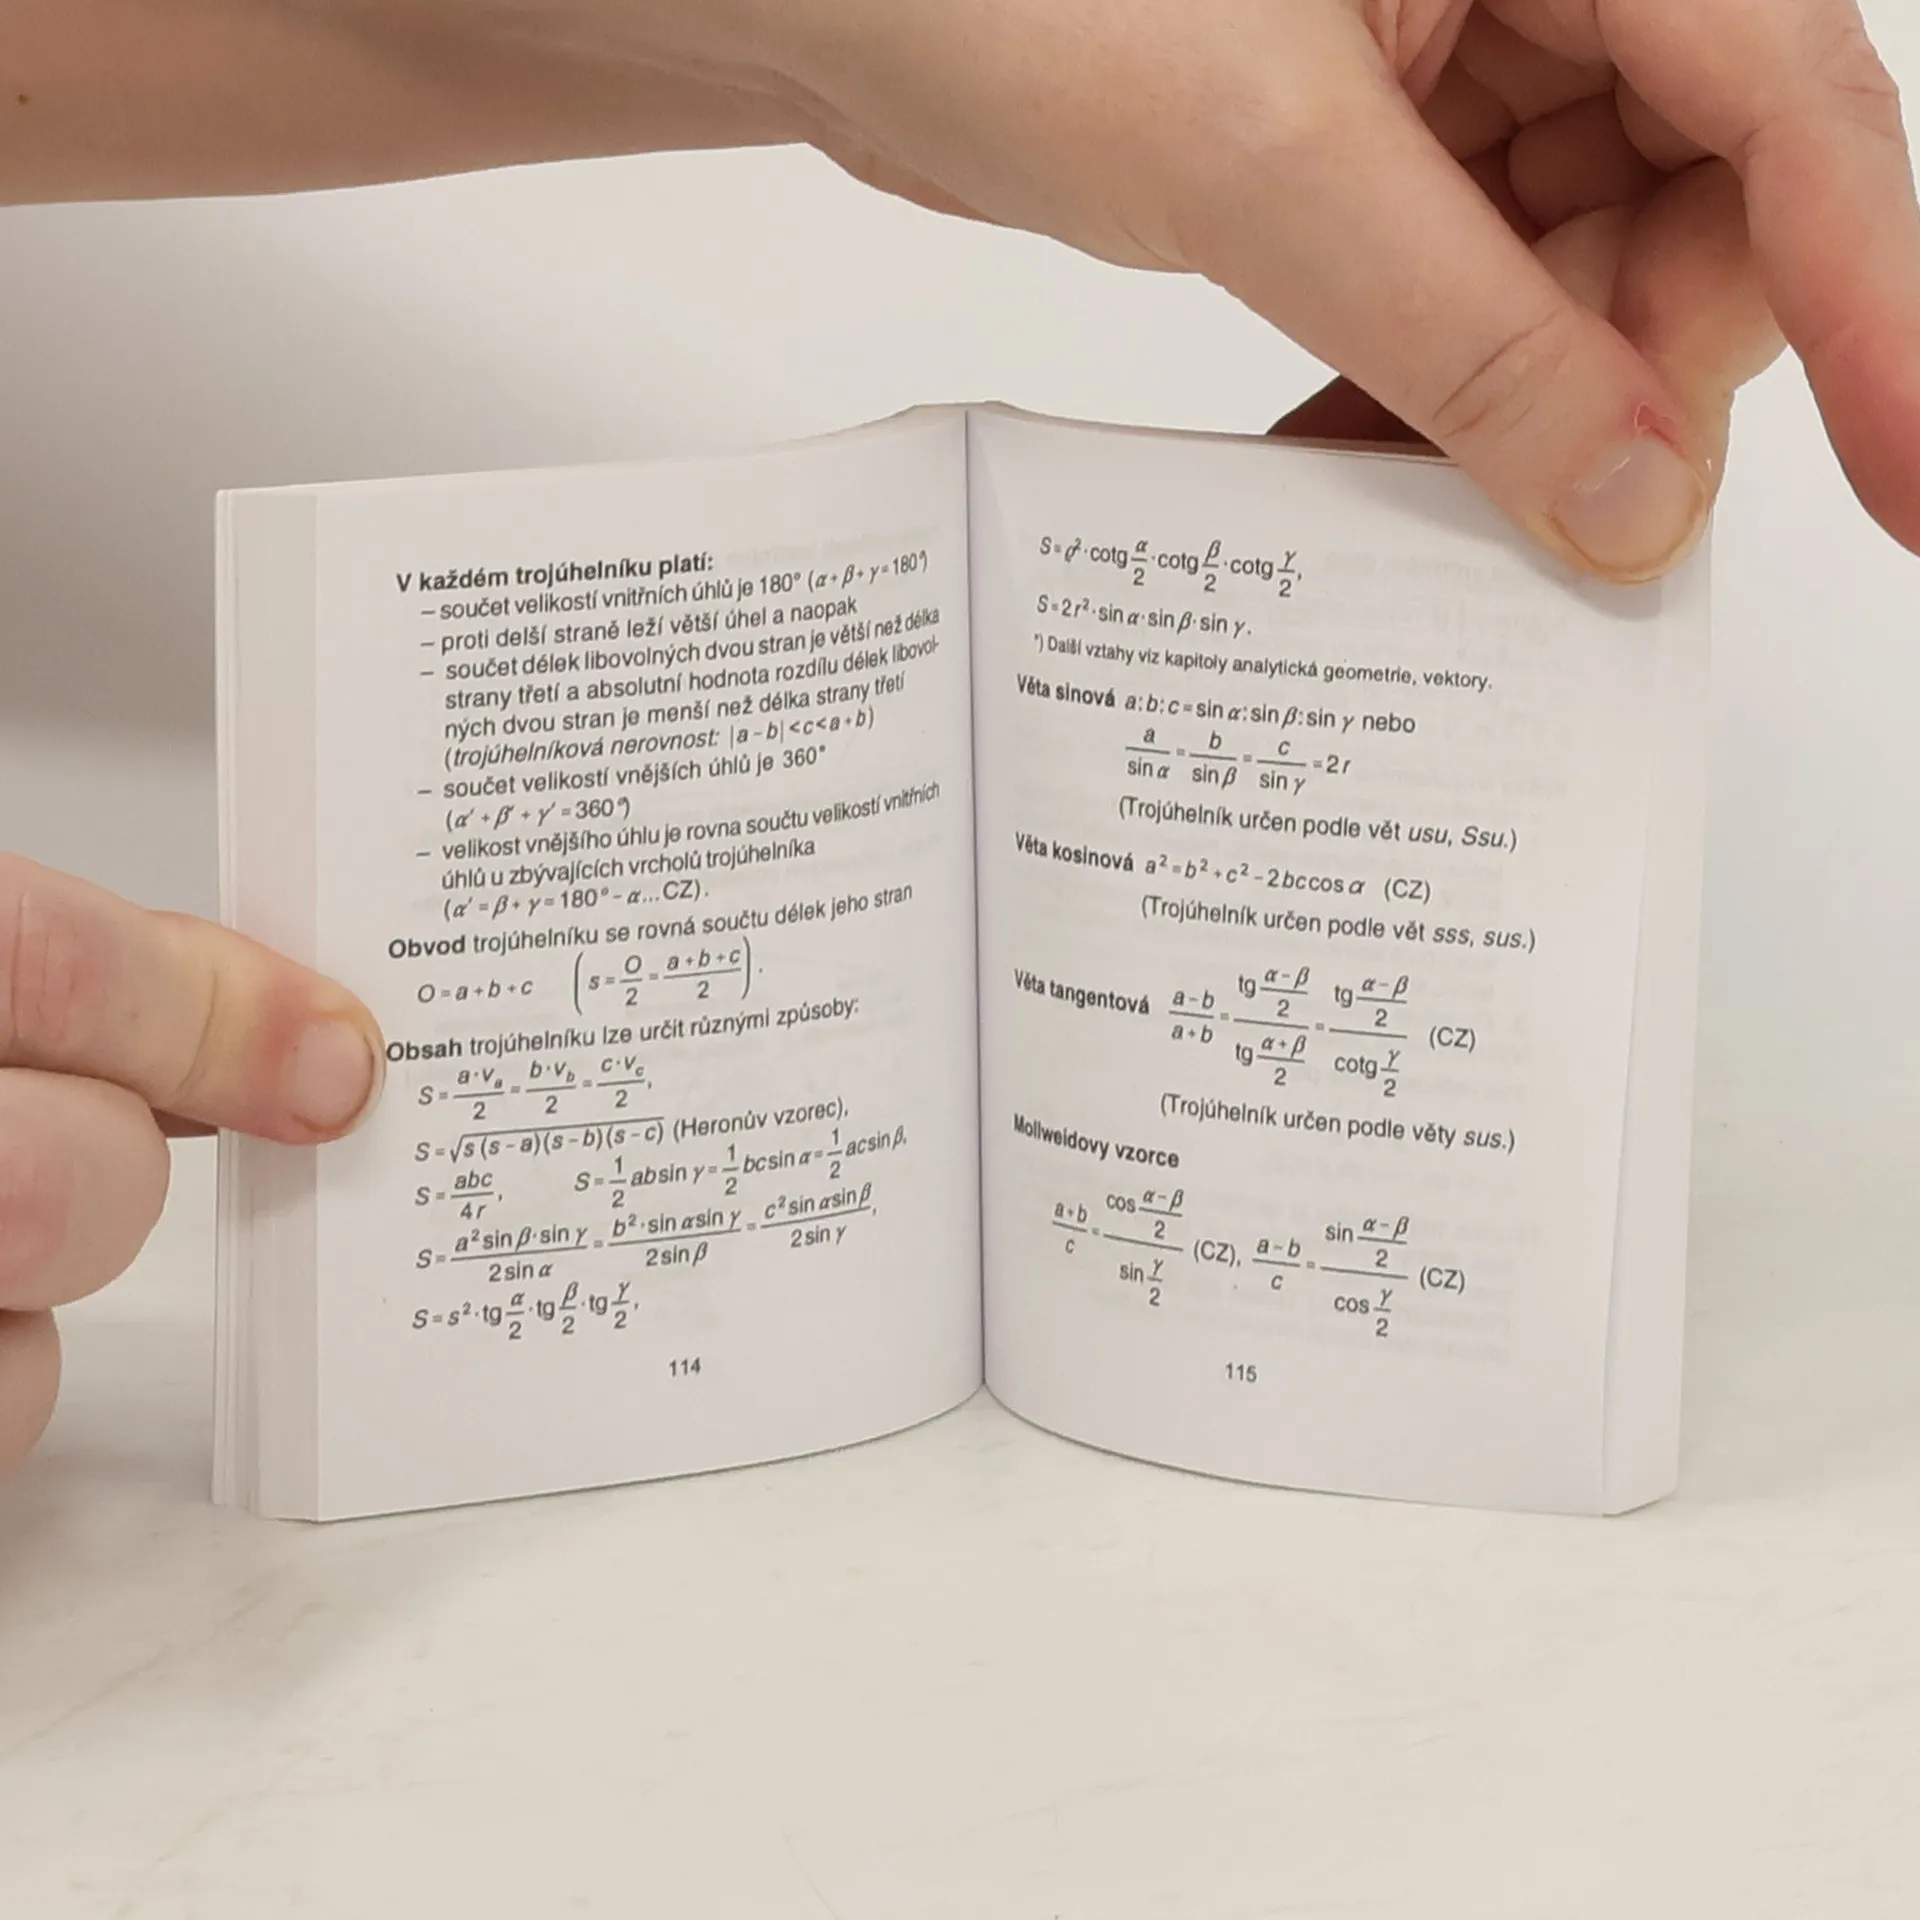 V každém trojúhelníku platí:
– součet velikostí vnitřních úhlů je 180° (α+β+γ=180°)
– proti delší straně leží větší úhel a naopak
– součet délek libovolných dvou stran je větší než délka
strany třetí a absolutní hodnota rozdílu délek libovol-
ných dvou stran je menší než délka strany třetí
(trojúhelníková nerovnost: |a-b|<c<a+b)
– součet velikostí vnějších úhlů je 360°
(α′+β′+γ′=360°)
– velikost vnějšího úhlu je rovna součtu velikostí vnitřních
úhlů u zbývajících vrcholů trojúhelníka
(α′=β+γ=180°-α...CZ).
Obvod trojúhelníku se rovná součtu délek jeho stran
O=a+b+c (s=O/2=(a+b+c)/2).
Obsah trojúhelníku lze určit různými způsoby:
S=a·vₐ/2=b·v_b/2=c·v_c/2,
S=√(s(s-a)(s-b)(s-c)) (Heronův vzorec),
S=abc/4r, S=1/2 absin γ=1/2 bcsin α=1/2 acsin β,
S=a²sin β·sin γ/2sin α=b²·sin αsin γ/2sin β=c²sin αsin β/2sin γ,
S=s²·tg α/2·tg β/2·tg γ/2,
114
S=ϱ²·cotg α/2·cotg β/2·cotg γ/2,
S=2r²·sin α·sin β·sin γ.
*) Další vztahy viz kapitoly analytická geometrie, vektory.
Věta sinová a:b:c=sin α:sin β:sin γ nebo
a/sin α=b/sin β=c/sin γ=2r
(Trojúhelník určen podle vět usu, Ssu.)
Věta kosinová a²=b²+c²-2bccos α (CZ)
(Trojúhelník určen podle vět sss, sus.)
Věta tangentová (a-b)/(a+b)=tg (α-β)/2 / tg (α+β)/2=tg (α-β)/2 / cotg γ/2 (CZ)
(Trojúhelník určen podle věty sus.)
Mollweidovy vzorce
(a+b)/c=cos (α-β)/2 / sin γ/2 (CZ), (a-b)/c=sin (α-β)/2 / cos γ/2 (CZ)
115